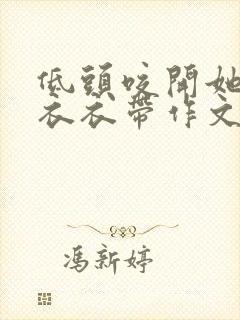 低頭咬開她
衣衣帶作文
馮新婷